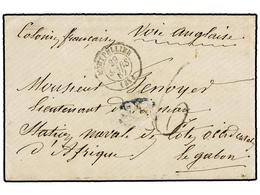 Colonies françaises Voie Anglaise
MONTPELLIER
Monsieur Lenoyer
Lieutenant de
Station naval des côtes occidentales
d'Afrique
le gabon